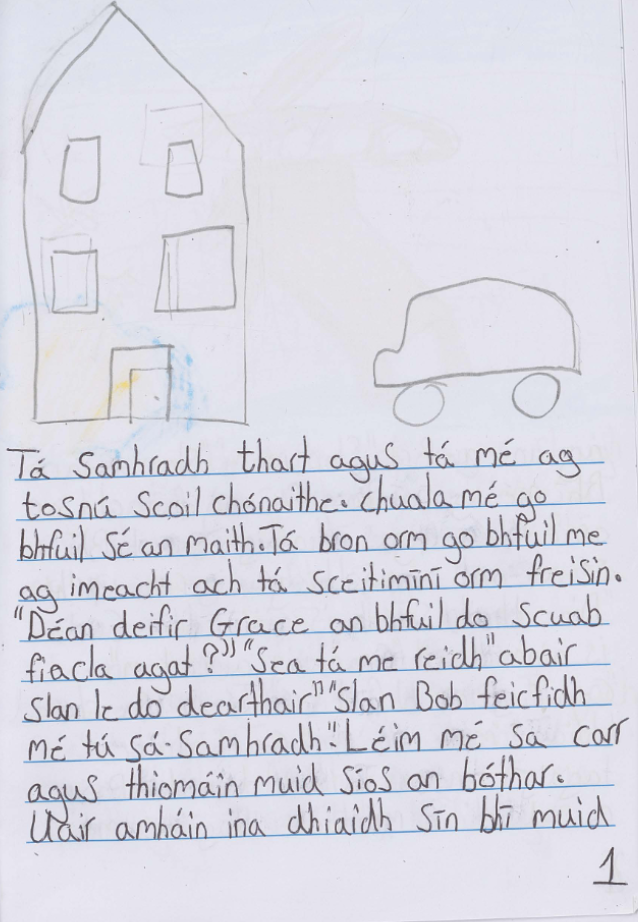 Tá Samhradh thart agus tá mé ag
tosnú scoil chónaithe. Chuala mé go
bhfuil sé an maith. Tá bron orm go bhfuil me
ag imeacht ach tá sceitimíní orm freisin.
"Déan deifir Grace an bhfuil do scuab
fiacla agat?" "Sea tá me reidh" abair
Slan le do dearthair" "Slan Bob feicfidh
mé tú sá Samhradh". Léim mé sa carr
agus thiomáin muid síos an bóthar.
Uair amháin ina dhiaidh sín bhí muid
1